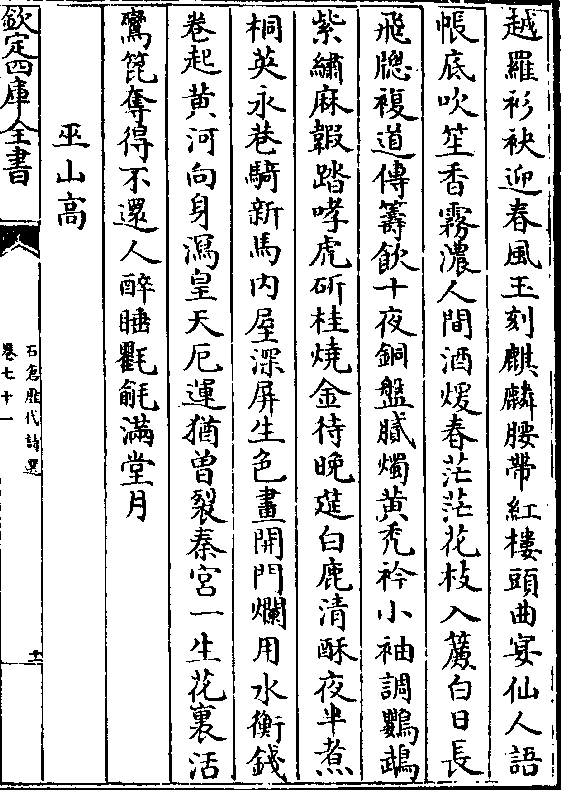 越羅衫袂迎春風玉刻麒麟腰帶紅樓頭曲宴仙人語
帳底吹笙香霧濃人間酒煖春茫茫花枝入簾白日長
飛牕複道傳籌飲十夜銅盤膩燭黄秃衿小袖調鸚鵡
紫繡麻鞋踏哮虎斫桂燒金待晚筵白鹿清酥夜半煮
桐英永巷騎新馬内屋深屏生色畫開門爛用水衡錢
卷起黄河向身瀉皇天厄運猶曽裂秦宮一生花裏活
鸞篦奪得不還人醉睡氍毹滿堂月
巫山高
欽定四庫全書
石倉歴代詩選
卷七十一
十二